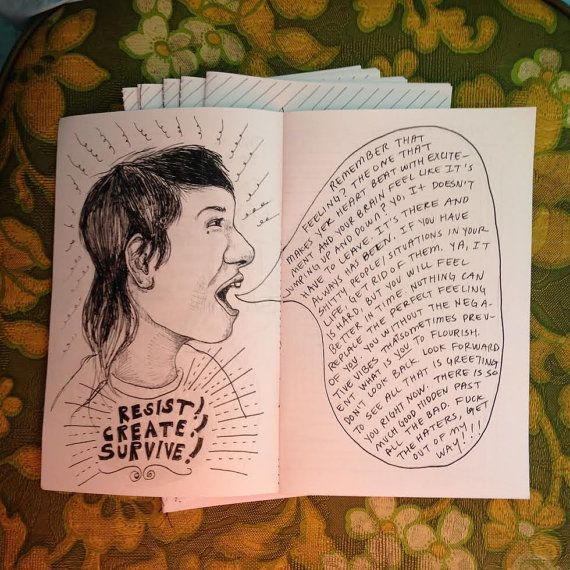 RESIST!
CREATE!
SURVIVE!
REMEMBER THAT
FEELING? THE ONE THAT
MAKES YER HEART BEAT WITH EXCITE-
MENT AND YOUR BRAIN FEEL LIKE IT'S
JUMPING UP AND DOWN? YO, IT DOESN'T
HAVE TO LEAVE. IT'S THERE AND
ALWAYS HAS BEEN. IF YOU HAVE
SHITTY PEOPLE/SITUATIONS IN YOUR
LIFE, GET RID OF THEM. YA, IT
IS HARD, BUT YOU WILL FEEL
BETTER IN TIME. NOTHING CAN
REPLACE THE PERFECT FEELING
OF YOU. YOU WITHOUT THE NEGA-
TIVE VIBES THAT SOMETIMES PREV-
ENT WHAT IS YOU TO FLOURISH.
DON'T LOOK BACK. LOOK FORWARD
TO SEE ALL THAT IS GREETING
YOU RIGHT NOW. THERE IS SO
MUCH GOOD HIDDEN PAST
ALL THE BAD. FUCK
THE HATERS, GET
OUT OF MY
WAY!!!